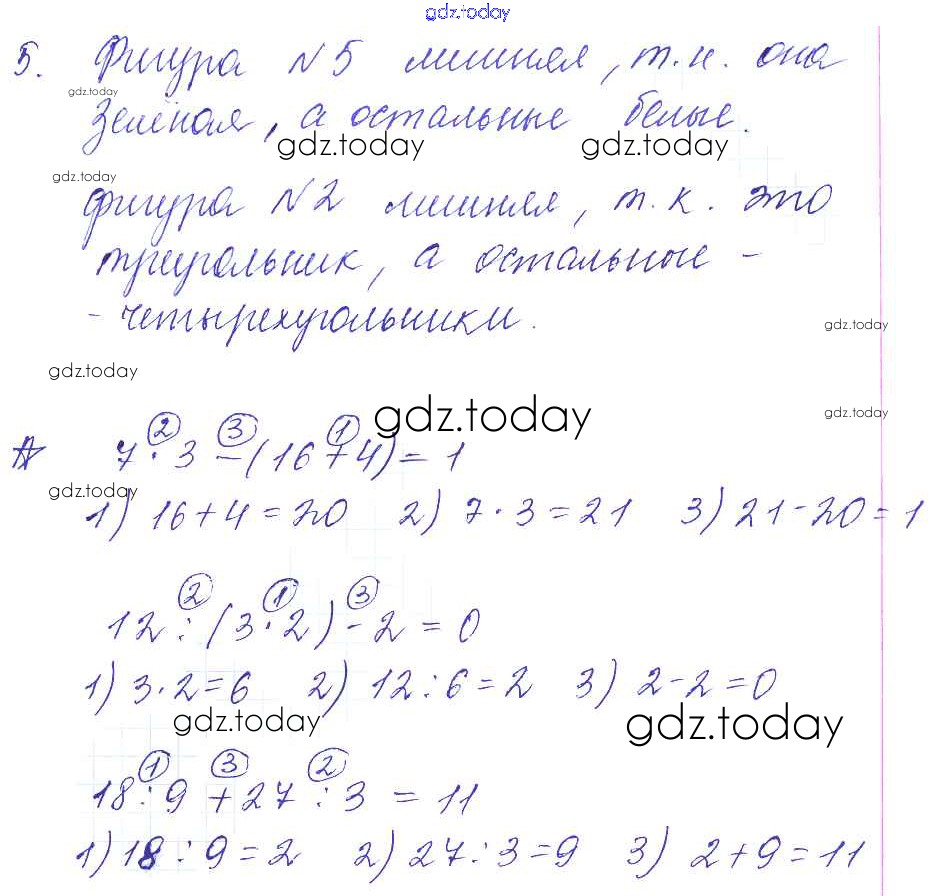 gdz.today
5. Фигура №5 лишняя, т.к. она
gdz.today
зелёная, а остальные белые.
gdz.today gdz.today
gdz.today
фигура №2 лишняя, т.к. это
треугольник, а остальные -
- четырехугольники.
gdz.today
gdz.today
gdz.today
gdz.today
2 3 1
☆ 7 · 3 - (16 + 4) = 1
gdz.today
1) 16 + 4 = 20 2) 7 · 3 = 21 3) 21 - 20 = 1
2 1 3
12 : (3 · 2) - 2 = 0
1) 3 · 2 = 6 2) 12 : 6 = 2 3) 2 - 2 = 0
gdz.today gdz.today
1 3 2
18 : 9 + 27 : 3 = 11
1) 18 : 9 = 2 2) 27 : 3 = 9 3) 2 + 9 = 11